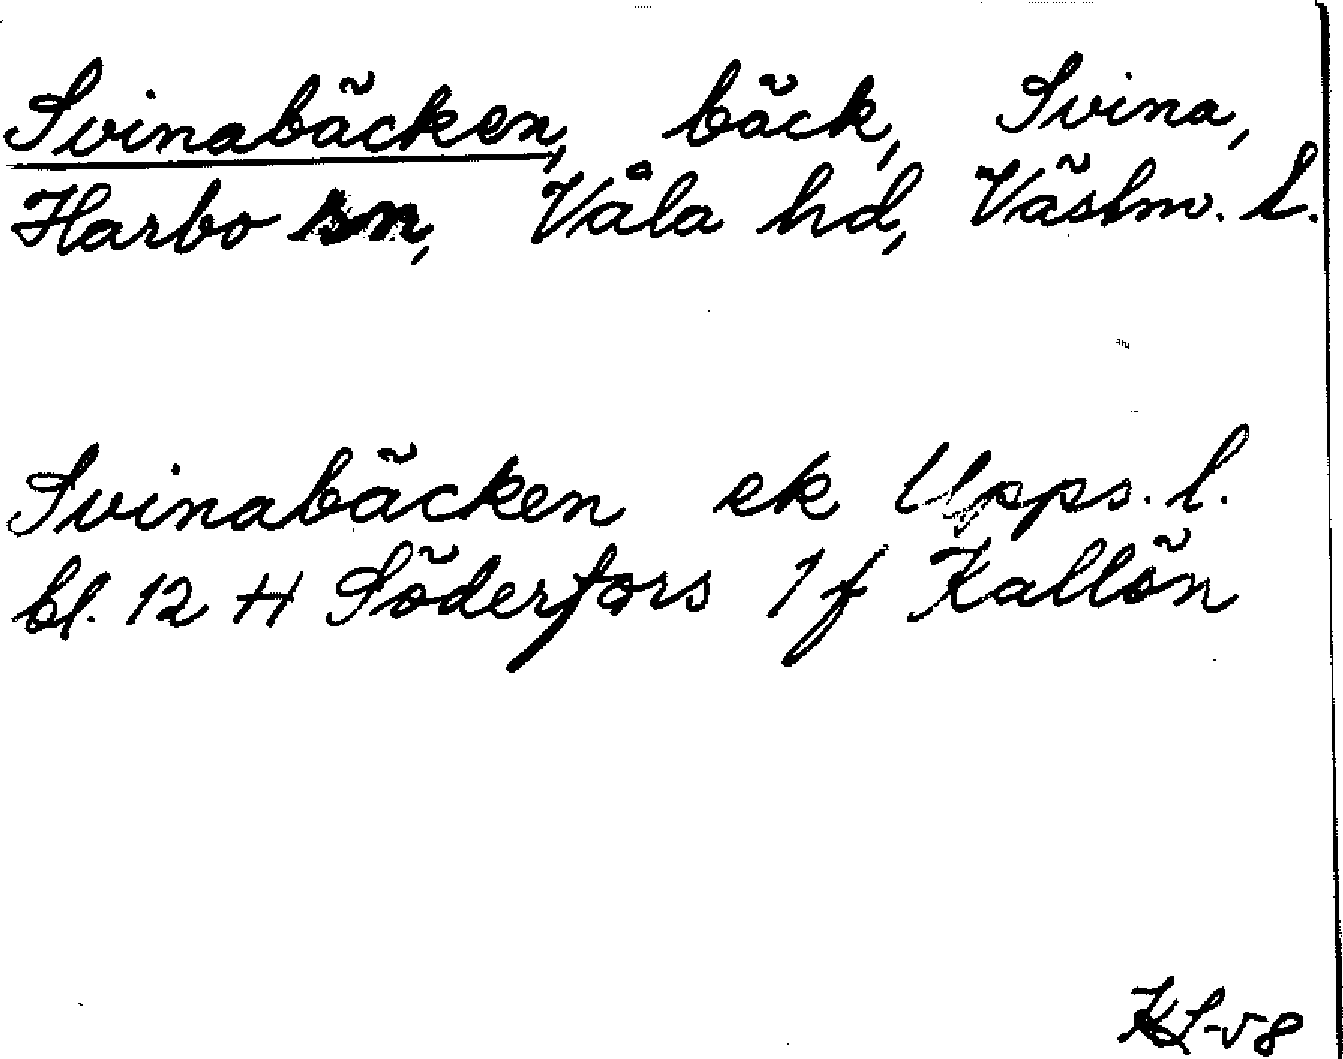 Svinabäcken, bäck, Svina,
Harbo sn, Våla hd, Västm. L.
Svinabäcken ek Upps. l.
bl. 12 H Söderfors 1 f Kallön
KL-58